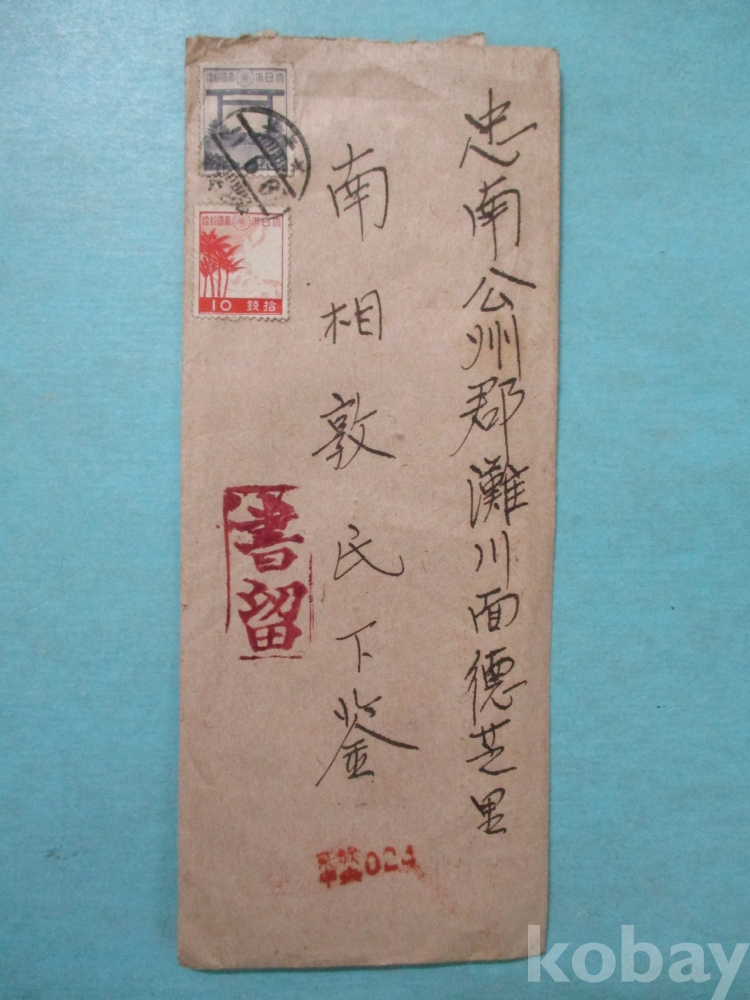 忠南公州郡灘川面德芝里
南相敦氏下鉴
大日本帝國郵便
大日本帝國郵便
10 拾錢
書留
024
kobay